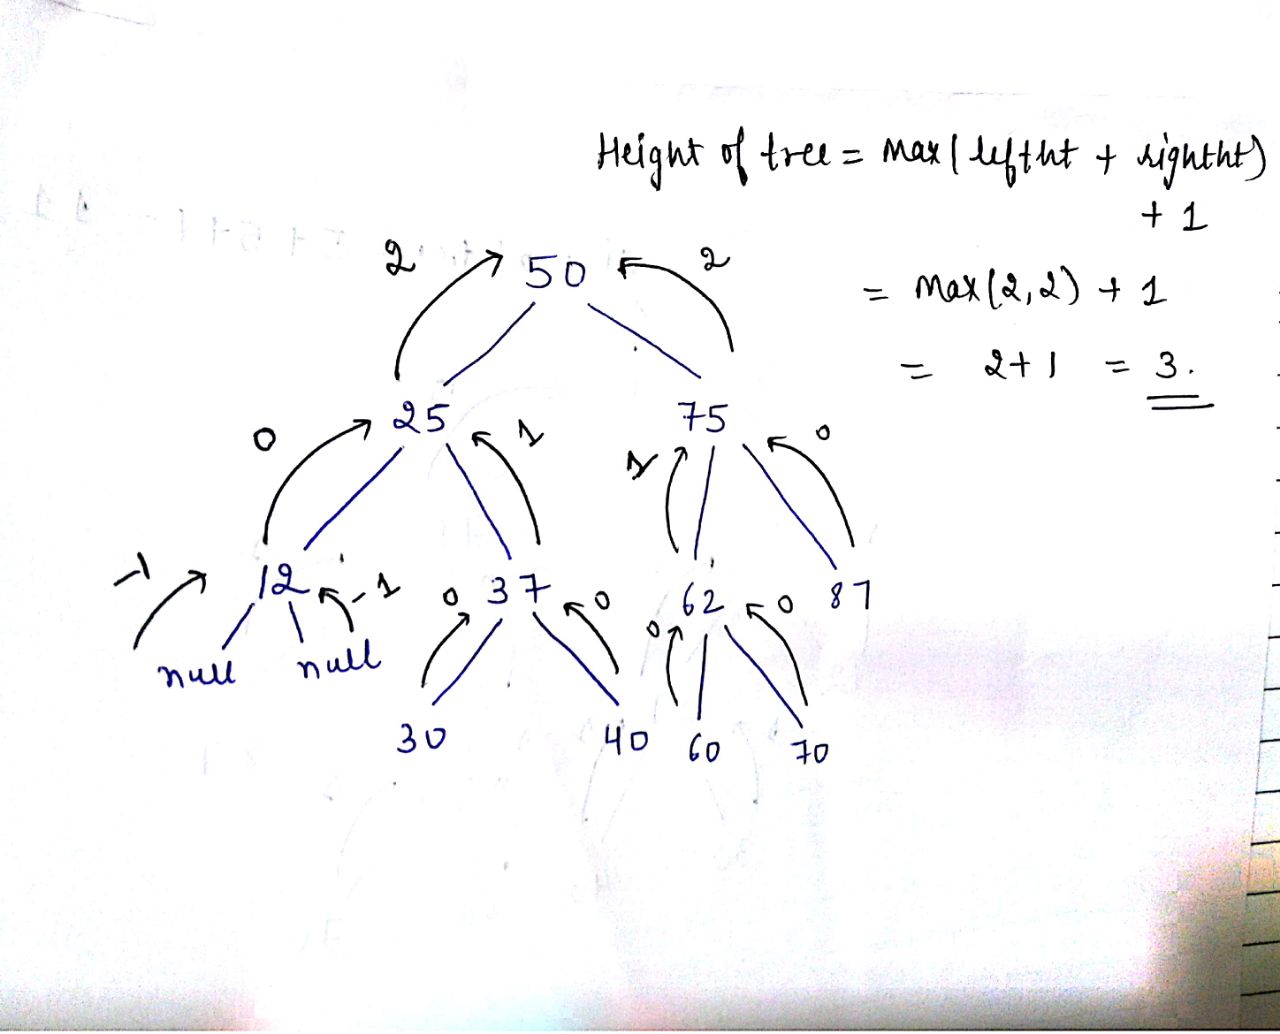 Height of tree = max( leftht + rightht)
+ 1
= max(2,2) + 1
= 2+1 = 3.
2 50 2
0 25 1 75 0
1
-1 12 -1 0 37 0 62 0 87
0
null null
30 40 60 70